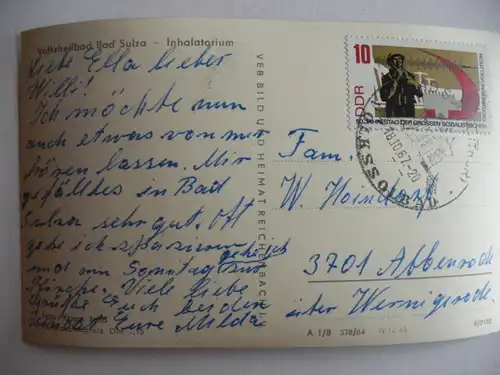 Volksheilbad Bad Sulza - Inhalatorium
Liebe Ella lieber
Willi!
Ich möchte nun
auch etwas von mir
hören lassen. Mir
gefällt es in Bad
Sulza, sehr gut. Oft
gehe ich spazieren
und am Sonntag gehe ich zur
Kirche. Viele liebe
Grüße Euch beiden
sendet Eure Milda
VEB BILD UND HEIMAT REICHENBACH
10
DDR
50. JAHRESTAG DER GROSSEN SOZIALISTISCHEN
OKTOBERREVOLUTION
18.10.67-20
Fam.
W. Hoindorf
3701 Abbenrode
über Wernigerode
A 1/B 378/64